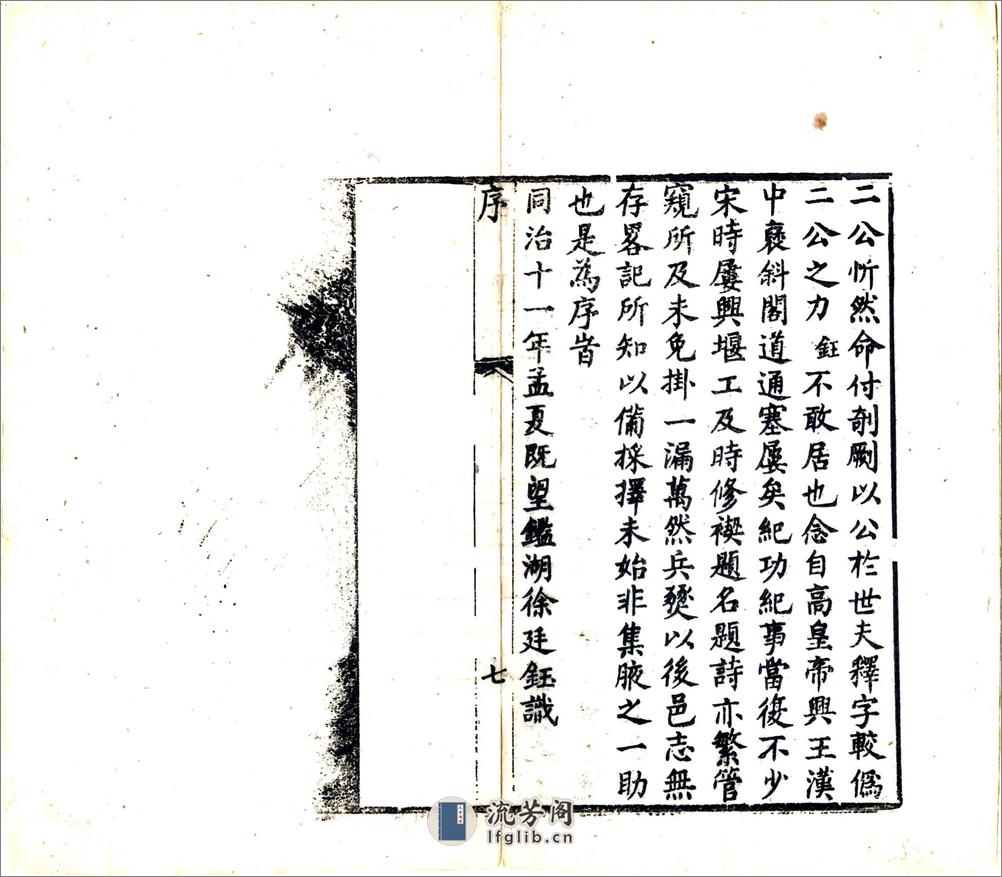 二公忻然命付剞劂以公於世夫釋字較僞
二公之力鈺不敢居也念自高皇帝興王漢
中褒斜閣道通塞屢矣紀功紀事當復不少
宋時屢興堰工及時修禊題名題詩亦繁管
窺所及未免掛一漏萬然兵燹以後邑志無
存畧記所知以備採擇未始非集腋之一助
也是為序旹
同治十一年孟夏既望鑑湖徐廷鈺識
序
七
流芳阁
lfglib.cn